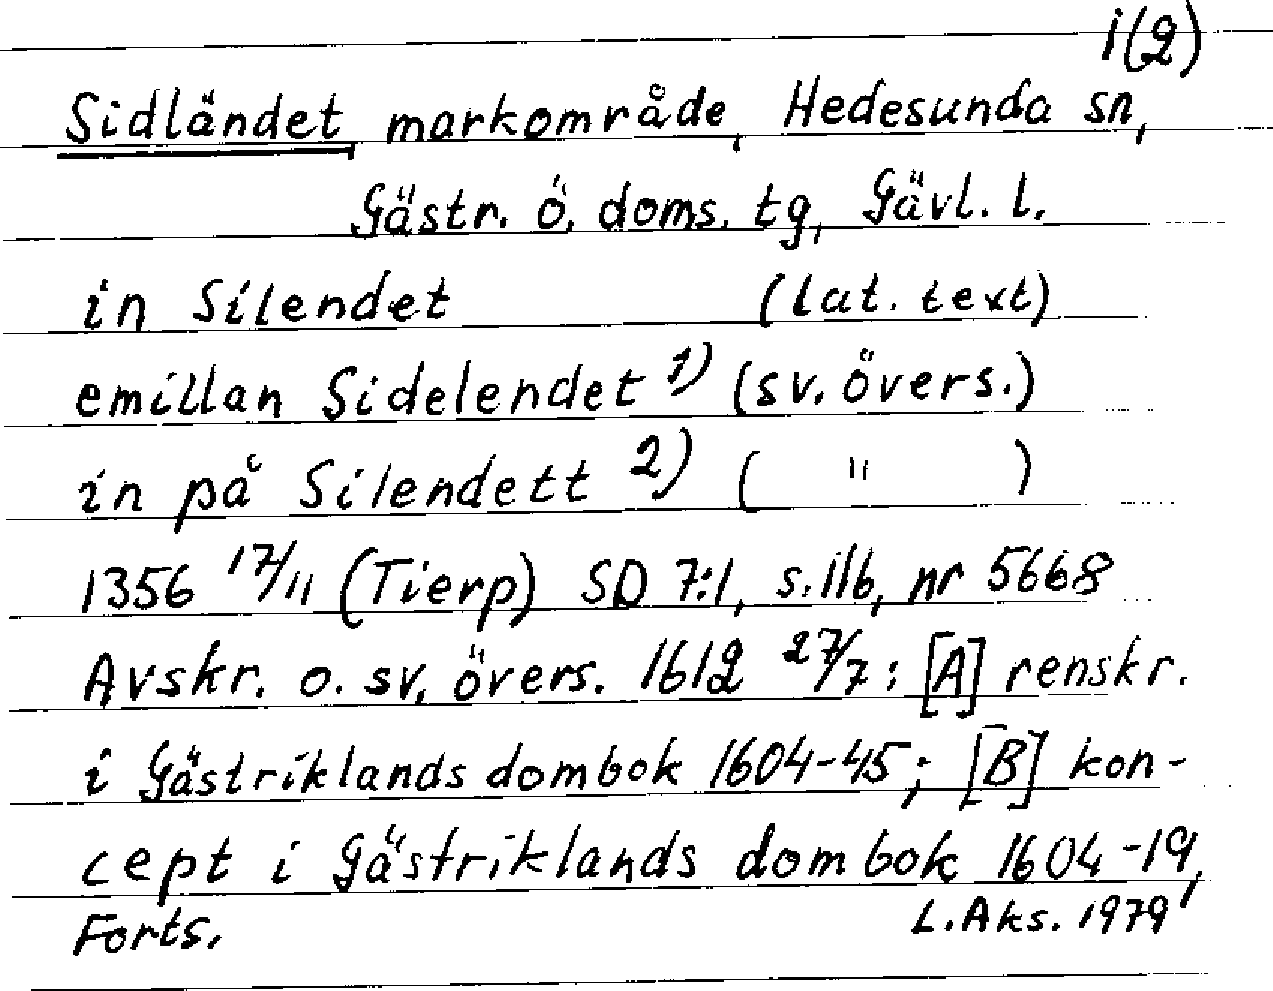 1(2)
Sidländet markområde, Hedesunda sn,
Gästr. ö. doms. tg, Gävl. l.
in Silendet (lat. text)
emillan Sidelendet 1) (sv. övers.)
in på Silendett 2) ( " )
1356 17/11 (Tierp) SD 7:1, s. 116, nr 5668
Avskr. o. sv. övers. 1612 27/7: [A] renskr.
i Gästriklands dombok 1604-45; [B] kon-
cept i Gästriklands dombok 1604-19,
Forts. L. Aks. 1979